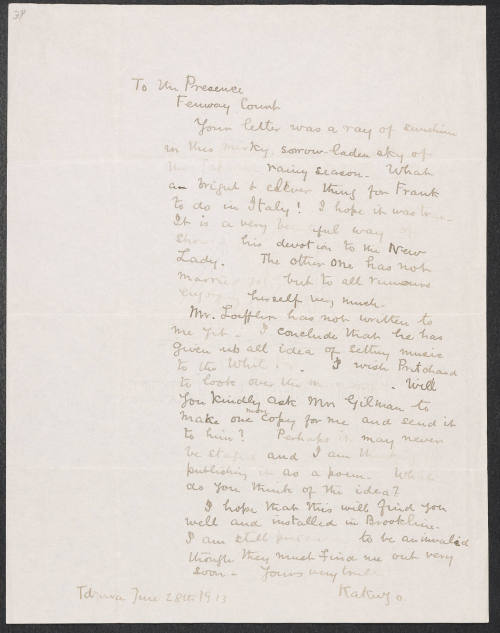 38
To the Presence
Fenway Court
Your letter was a ray of sunshine
in this murky, sorrow-laden sky of
the rainy season. What
a bright & clever thing for Frank
to do in Italy! I hope it was true.
It is a very beautiful way of
his devotion to the New
Lady. The other one has not
married yet but to all rumours
enjoys herself very much.
Mr. Loeffler has not written to
me yet. I conclude that he has
given up all idea of setting music
to the White . I wish Pritchard
to look over the . Will
you kindly ask Mrs Gilman to
make one more copy for me and send it
to him? Perhaps it may never
be staged and I am
publishing it as a poem. What
do you think of the idea?
I hope that this will find you
well and installed in Brookline.
I am still to be an invalid
though they must find me out very
soon. Yours very truly
Idzura June 28th 1913 Kakuzo